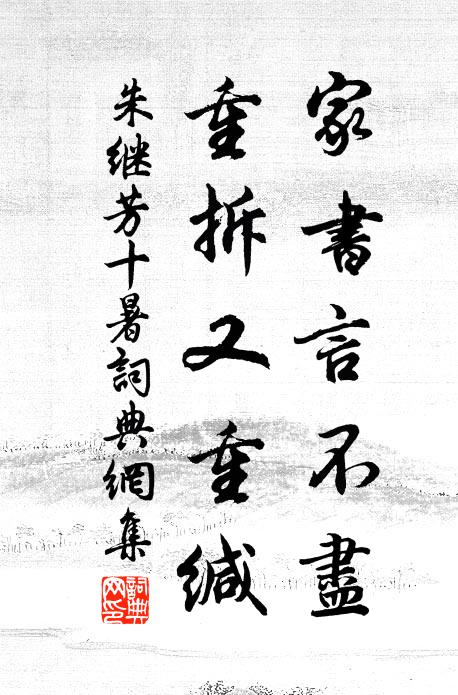 家書言不盡
重拆又重緘
朱继芳十暑詞典網集
詞典网印